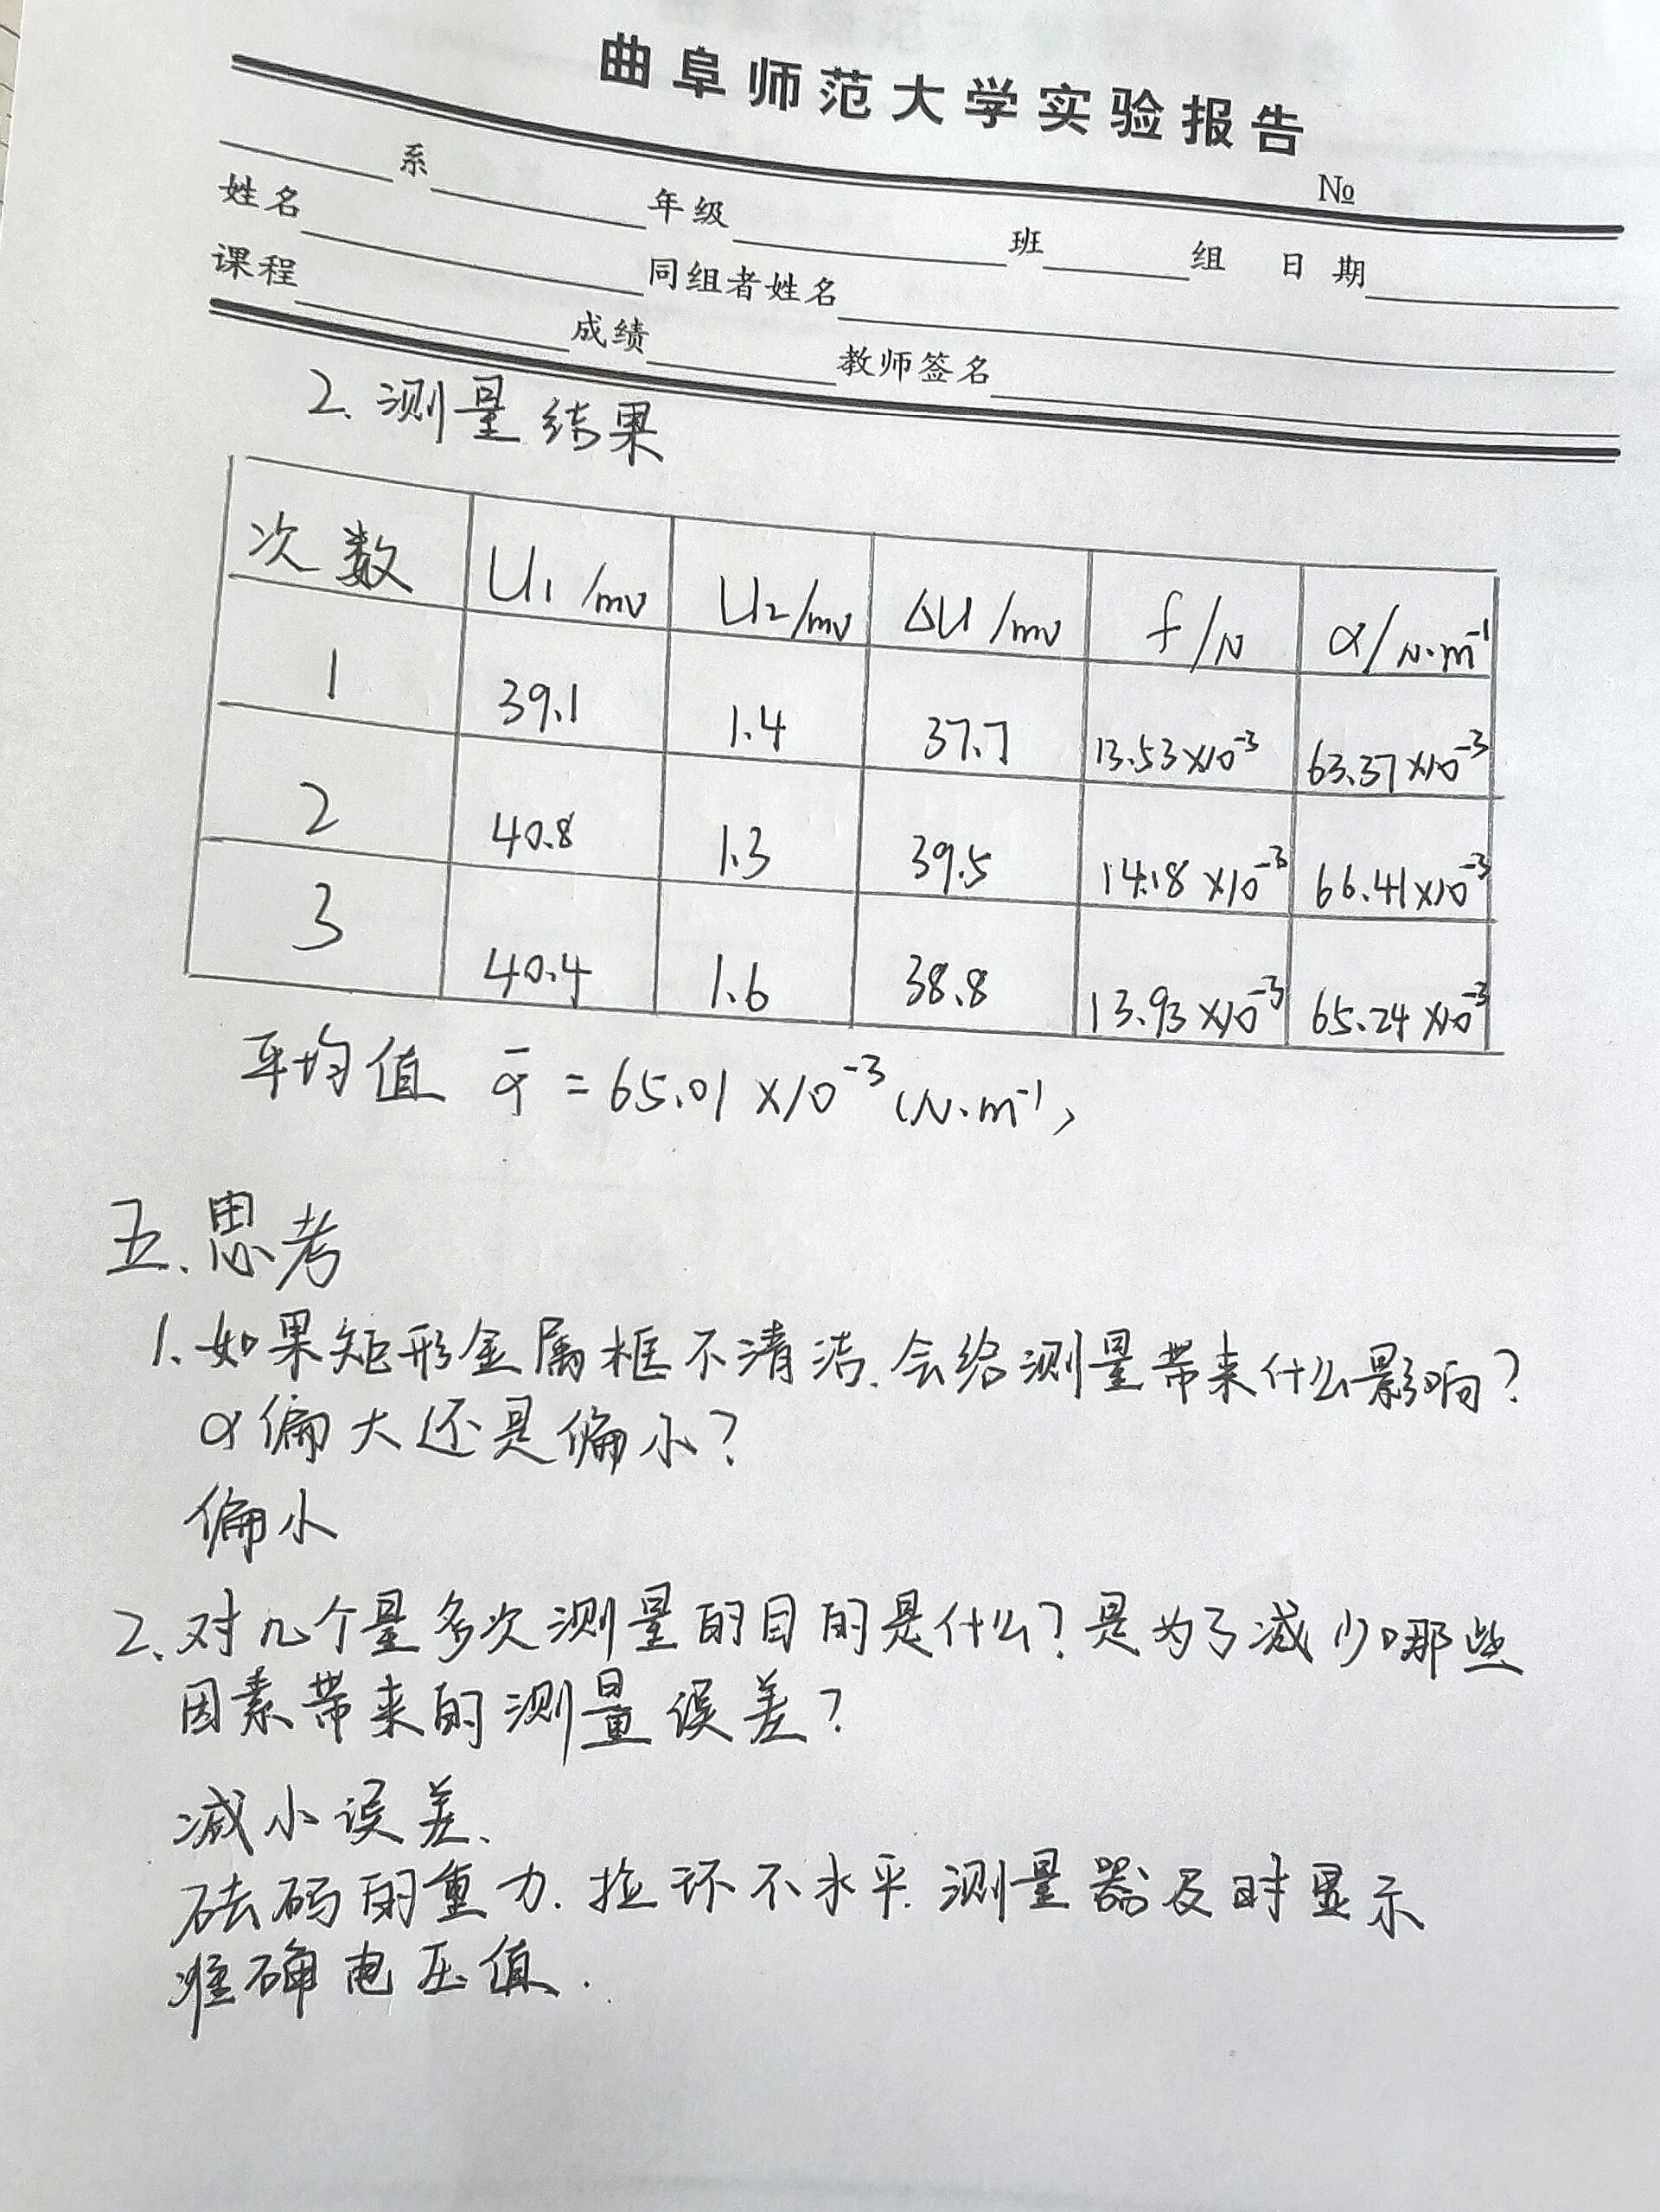 曲阜师范大学实验报告
№
系 年级 班 组 日期
姓名 同组者姓名
课程 成绩 教师签名
2. 测量结果
次数 U1/mv U2/mv ΔU/mv f/N α/N·m⁻¹
1 39.1 1.4 37.7 13.53×10⁻³ 63.37×10⁻³
2 40.8 1.3 39.5 14.18×10⁻³ 66.41×10⁻³
3 40.4 1.6 38.8 13.93×10⁻³ 65.24×10⁻³
平均值 ᾱ = 65.01×10⁻³ (N·m⁻¹)
五、思考
1. 如果矩形金属框不清洁,会给测量带来什么影响?
α偏大还是偏小?
偏小
2. 对几个量多次测量的目的是什么?是为了减少哪些
因素带来的测量误差?
减小误差、
砝码的重力、拉环不水平、测量器及时显示
准确电压值.